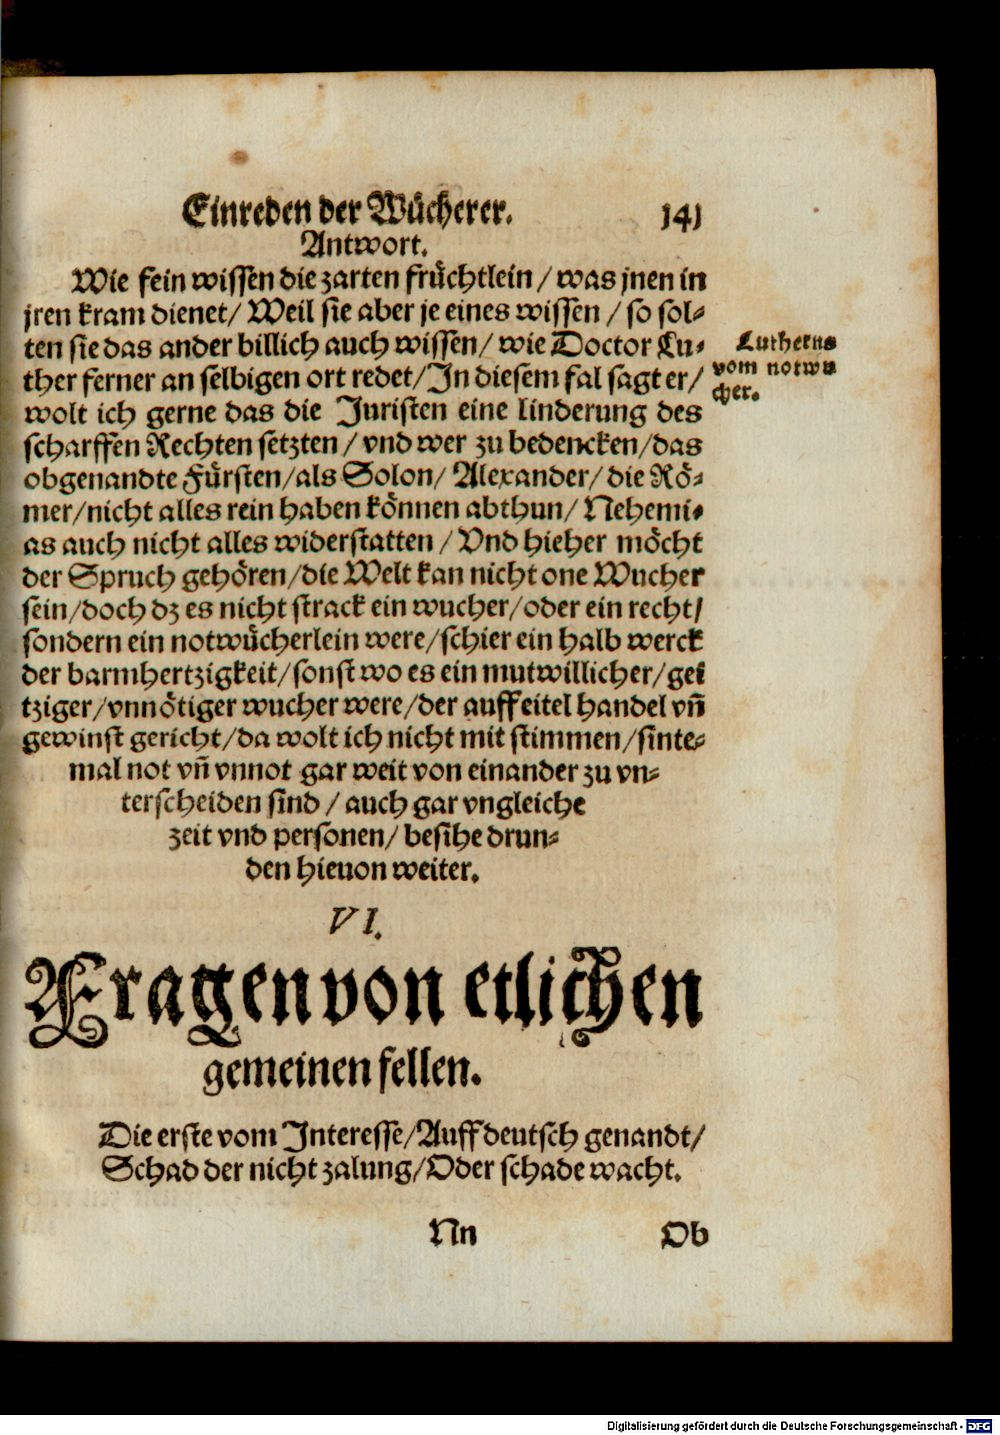 Einreden der Wücherer. 141
Antwort.
Wie fein wissen die zarten früchtlein / was jnen in
jren kram dienet/ Weil sie aber je eines wissen / so sol-
ten sie das ander billich auch wissen/ wie Doctor Lu-
ther ferner an selbigen ort redet/ In diesem fal sagt er/
wolt ich gerne das die Juristen eine linderung des
scharffen Rechten setzten / vnd wer zu bedencken/das
obgenandte Fürsten/als Solon/ Alexander/ die Rö-
mer/nicht alles rein haben können abthun/ Nehemi-
as auch nicht alles widerstatten / Vnd hieher möcht
der Spruch gehören/die Welt kan nicht one Wucher
sein/doch dz es nicht strack ein wucher/oder ein recht/
sondern ein notwücherlein were/schier ein halb werck
der barmhertzigkeit/sonst wo es ein mutwillicher/gei
tziger/vnnötiger wucher were/der auff eitel handel vñ
gewinst gericht/da wolt ich nicht mit stimmen/sinte-
mal not vñ vnnot gar weit von einander zu vn-
terscheiden sind / auch gar vngleiche
zeit vnd personen/ besihe drun-
den hieuon weiter.
Lutherus
vom notwu
cher.
VI.
Fragen von etlichen
gemeinen fellen.
Die erste vom Interesse/Auff deutsch genandt/
Schad der nicht zalung/Oder schade wacht.
Nn Ob
Digitalisierung gefördert durch die Deutsche Forschungsgemeinschaft - DFG